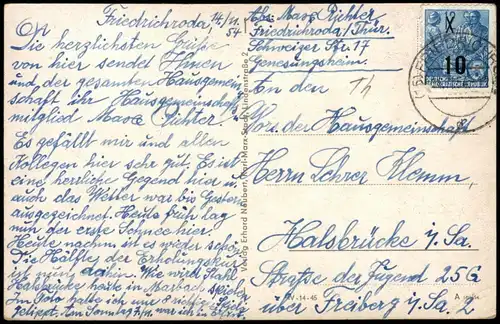 Friedrichroda, 14/11.
54
Die herzlichsten Grüße
von hier sendet Ihnen
und der gesamten Hausgemein-
schaft ihr Hausgemeinschafts
mitglied Max Richter.
Es gefällt mir und allen
Kollegen hier sehr gut. Es ist
eine herrliche Gegend hier u.
auch das Wetter war bis Gestern
ausgezeichnet. Heute früh lag
nun der erste Schnee hier.
Heute nachm. ist es wieder schön.
Die Hälfte der Erholungskur
ist nun dahin. Wie wird Stahl
Halsbrücke heute in Marbach spielen.
Im Toto hatte ich nur 8 richtige Spiele
getippt. Am Sonntag 21/11. war ich in
Abs. Max Richter
Friedrichroda/Thür.
Schweizer Str. 17
Genesungsheim.
An den
Th
Vors. der Hausgemeinschaft
Herrn Lehrer Klemm,
Halsbrücke i/Sa.
Straße der Jugend 25G
über Freiberg i/Sa. 2
Verlag Erhard Neubert, Karl-Marx-Stadt,
X
10
DEUTSCHE
DEMOKRATISCHE REPUBLIK
IV-14-45
A